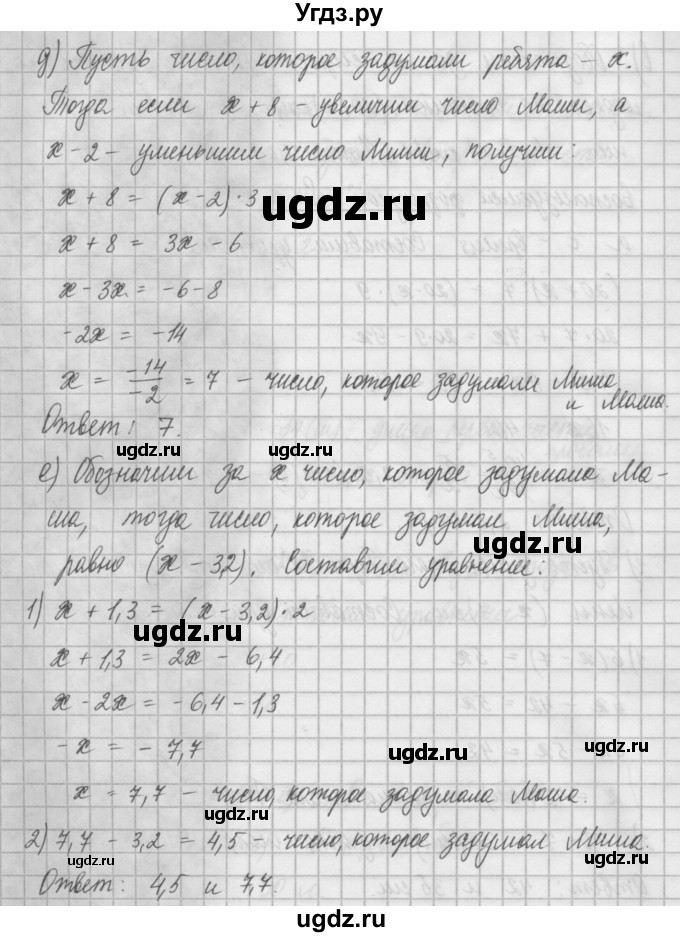 Угдз.ру
д) Пусть число, которое задумали ребята – x.
Тогда если x + 8 – увеличим число Маши, а
x – 2 – уменьшим число Миши, получим:
x + 8 = (x – 2) · 3
ugdz.ru
x + 8 = 3x – 6
x – 3x = –6 – 8
–2x = –14
x = –14/–2 = 7 – число, которое задумали Миша
и Маша.
Ответ: 7.
ugdz.ru
ugdz.ru
е) Обозначим за x число, которое задумала Ма-
ugdz.ru
ша, тогда число, которое задумал Миша,
равно (x – 3,2). Составим уравнение:
ugdz.ru
1) x + 1,3 = (x – 3,2) · 2
ugdz.ru
x + 1,3 = 2x – 6,4
x – 2x = –6,4 – 1,3
–x = – 7,7
ugdz.ru
ugdz.ru
x = 7,7 – число, которое задумала Маша.
ugdz.ru
2) 7,7 – 3,2 = 4,5 – число, которое задумал Миша.
ugdz.ru
ugdz.ru
Ответ: 4,5 и 7,7.
ugdz.ru
ugdz.ru